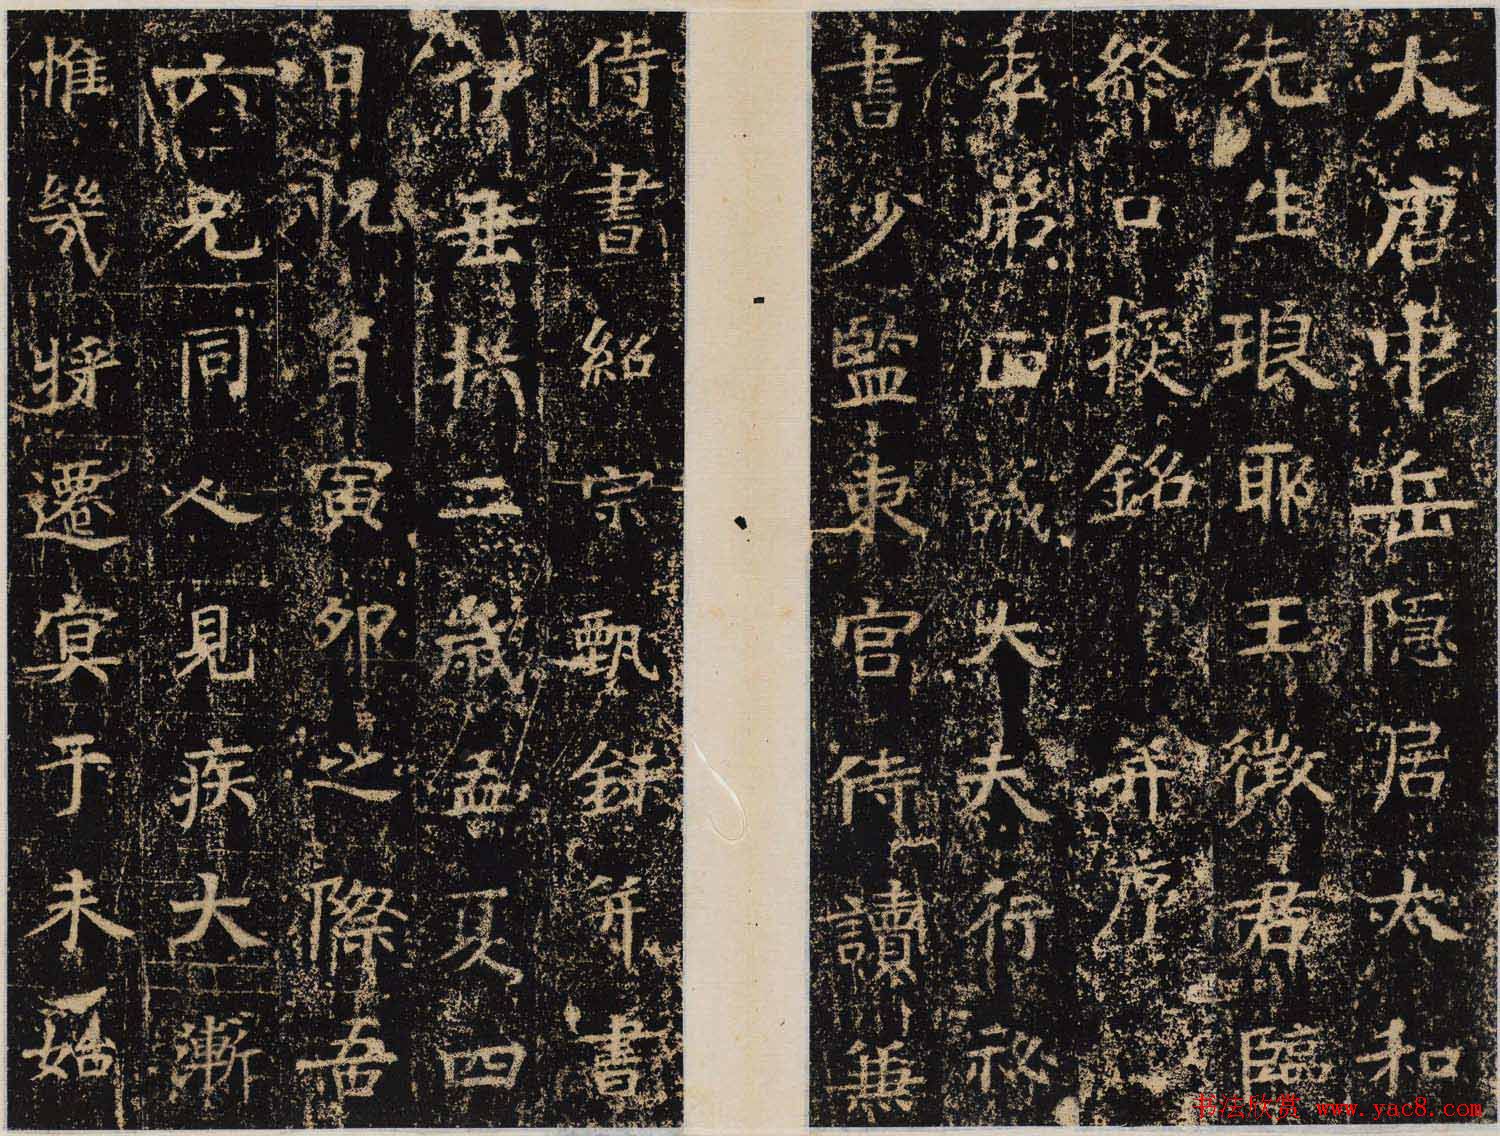 大唐中岳隱居太和
先生琅耶王徵君臨
終口授銘并序
季弟正議大夫行祕
書少監東宮侍讀兼
侍書紹宗甄録并書
伊垂拱二歲孟夏四
日寅卯之際吾
六兄同人見疾大漸
惟幾將遷冥于未始
书法欣赏 www.yac8.com